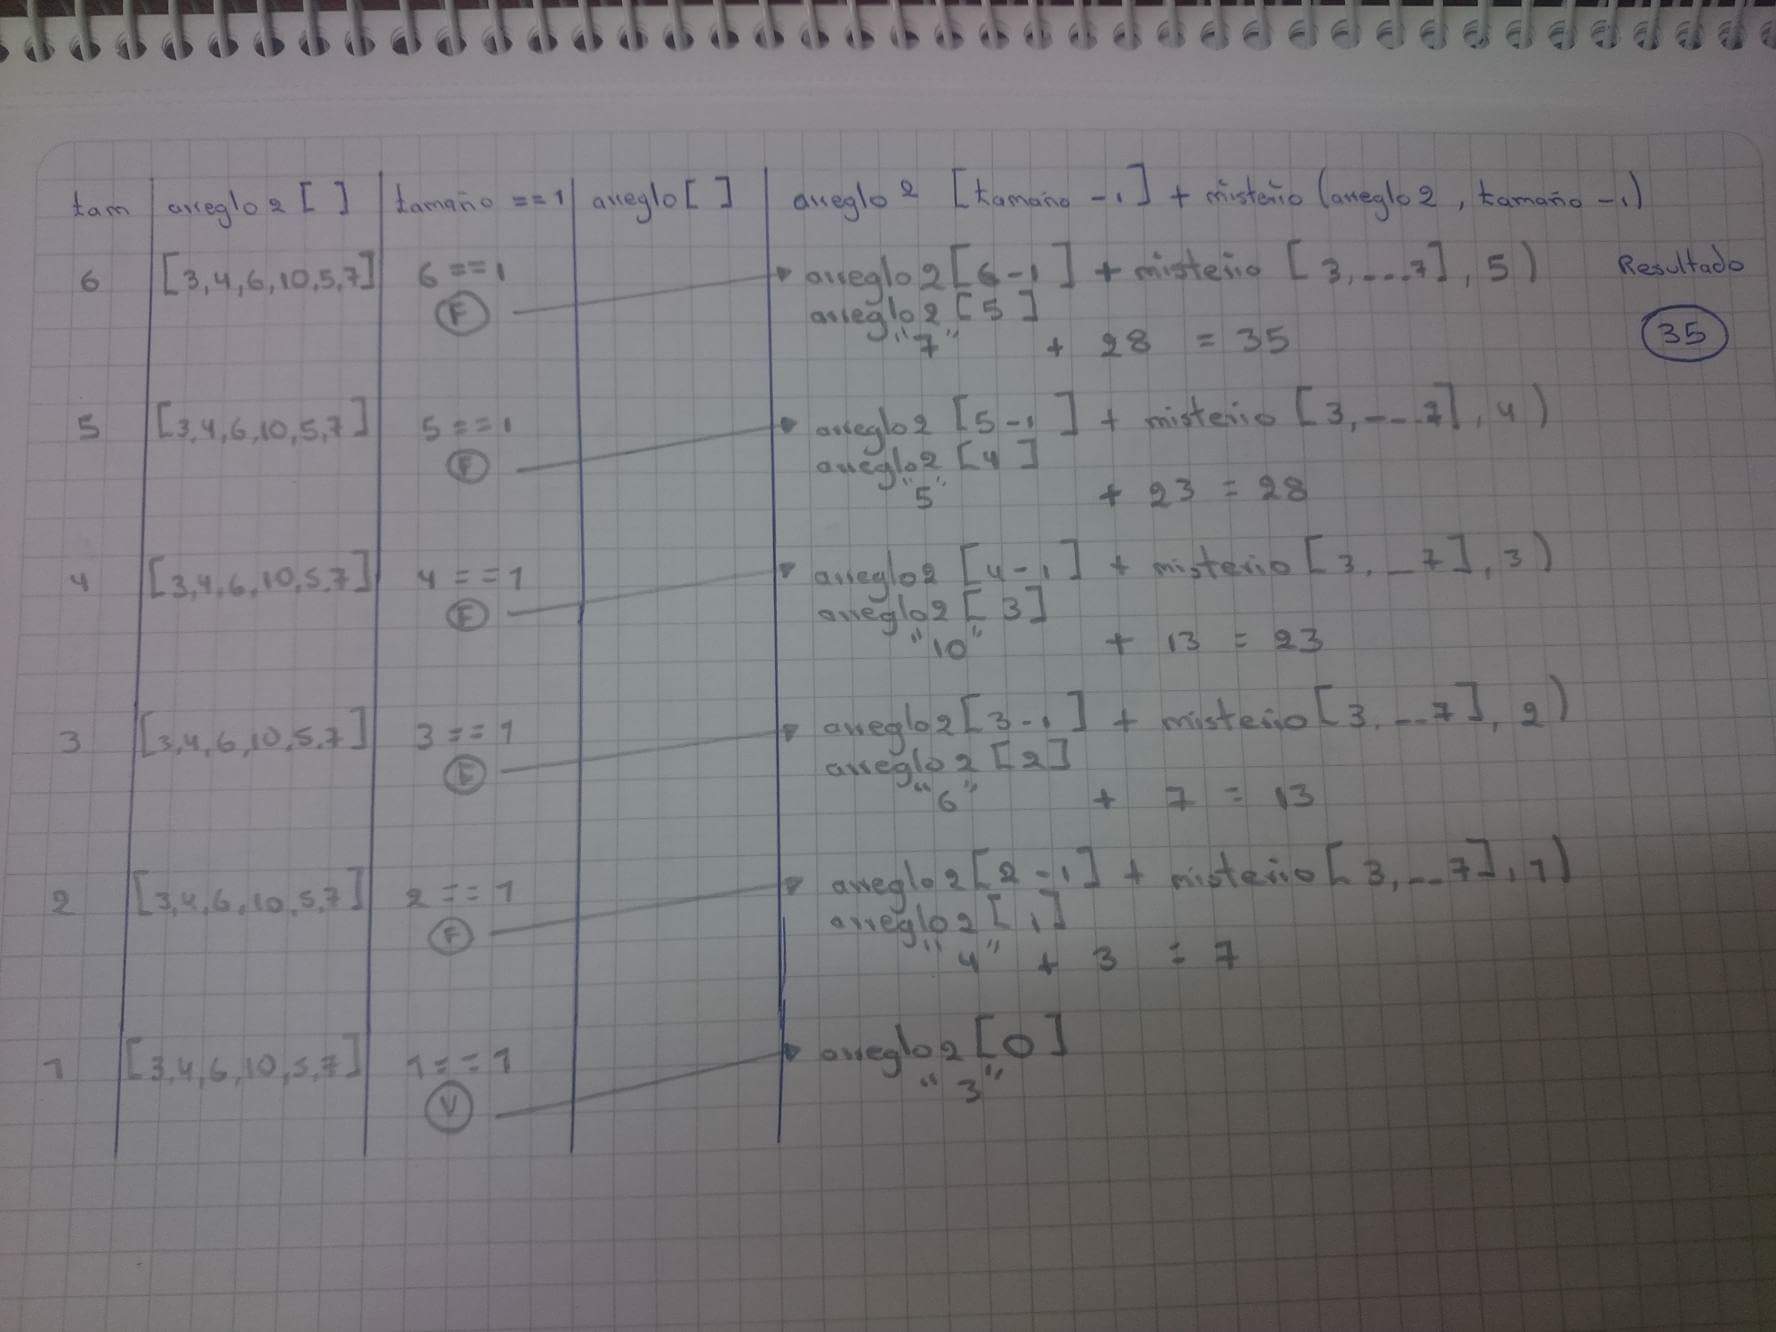 tam arreglo2[ ] tamaño ==1 arreglo[ ] arreglo2 [tamaño -1] + misterio (arreglo2, tamaño -1)
6 [3,4,6,10,5,7] 6==1 arreglo2[6-1] + misterio [3,...7], 5) Resultado
F arreglo2[5]
"7" + 28 = 35 35
5 [3,4,6,10,5,7] 5==1 arreglo2 [5-1] + misterio [3,--.7], 4)
F arreglo2 [4]
"5" + 23 = 28
4 [3,4,6,10,5,7] 4==1 arreglo2 [4-1] + misterio [3,_7], 3)
F arreglo2 [3]
"10" + 13 = 23
3 [3,4,6,10,5,7] 3==1 arreglo2[3-1] + misterio[3,--7], 2)
F arreglo2 [2]
"6" + 7 = 13
2 [3,4,6,10,5,7] 2==1 arreglo2[2-1] + misterio[3,--7], 1)
F arreglo2[1]
"4" + 3 = 7
1 [3,4,6,10,5,7] 1==1 arreglo2[0]
V "3"